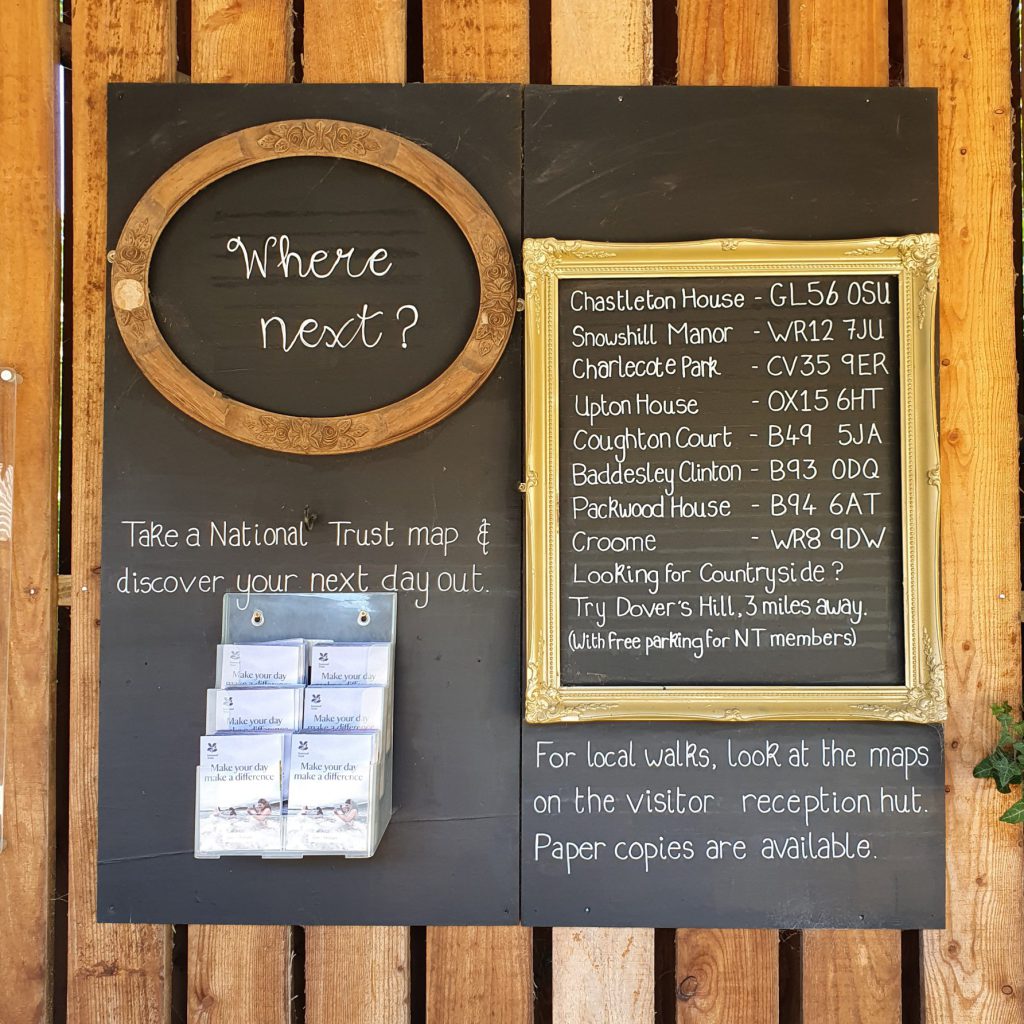 Where
next?
Take a National Trust map &
discover your next day out.
Make your day
Make your day
Make your day
Make your day
Make your day
make a difference
Make your day
make a difference
Chastleton House - GL56 0SU
Snowshill Manor - WR12 7JU
Charlecote Park - CV35 9ER
Upton House - OX15 6HT
Coughton Court - B49 5JA
Baddesley Clinton - B93 0DQ
Packwood House - B94 6AT
Croome - WR8 9DW
Looking for Countryside?
Try Dover's Hill, 3 miles away.
(With free parking for NT members)
For local walks, look at the maps
on the visitor reception hut.
Paper copies are available.